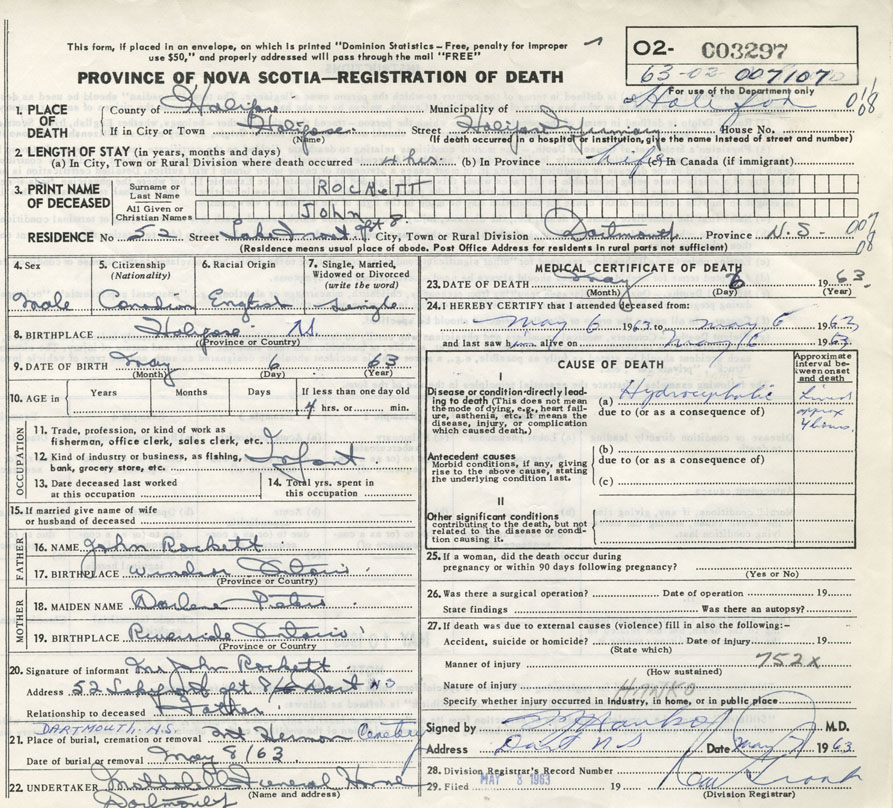 This form, if placed in an envelope, on which is printed "Dominion Statistics – Free, penalty for improper
use $50," and properly addressed will pass through the mail "FREE"
O2- C03297
63-02 007107
PROVINCE OF NOVA SCOTIA—REGISTRATION OF DEATH
For use of the Department only
1. PLACE OF DEATH
County of Halifax Municipality of Halifax
If in City or Town Halifax Street Halifax Infirmary House No.
(Name) (If death occurred in a hospital or institution, give the name instead of street and number)
2. LENGTH OF STAY (in years, months and days)
(a) In City, Town or Rural Division where death occurred 4 hrs. (b) In Province Life (c) In Canada (if immigrant).
3. PRINT NAME OF DECEASED
Surname or Last Name ROCKETT
All Given or Christian Names JOHN
RESIDENCE No 52 Street Lakefront apt 8. City, Town or Rural Division Dartmouth Province N.S.
(Residence means usual place of abode. Post Office Address for residents in rural parts not sufficient)
4. Sex 5. Citizenship (Nationality) 6. Racial Origin 7. Single, Married, Widowed or Divorced (write the word)
Male Canadian English Single
8. BIRTHPLACE Halifax N.S.
(Province or Country)
9. DATE OF BIRTH May 6 63
(Month) (Day) (Year)
10. AGE in Years Months Days If less than one day old
4 hrs. or min.
OCCUPATION
11. Trade, profession, or kind of work as
fisherman, office clerk, sales clerk, etc.
12. Kind of industry or business, as fishing,
bank, grocery store, etc. Infant
13. Date deceased last worked at this occupation 14. Total yrs. spent in this occupation
15. If married give name of wife
or husband of deceased
FATHER
16. NAME John Rockett
17. BIRTHPLACE Windsor Ontario
(Province or Country)
MOTHER
18. MAIDEN NAME Darlene Peters
19. BIRTHPLACE Riverside Ontario
(Province or Country)
20. Signature of informant Mr John Rockett
Address 52 Lakefront apt 8 Dart NS
Relationship to deceased Father
DARTMOUTH, N.S.
21. Place of burial, cremation or removal Mt Hermon Cemetery
Date of burial or removal May 8/63
22. UNDERTAKER Funeral Home
(Name and address)
Dartmouth
MEDICAL CERTIFICATE OF DEATH
23. DATE OF DEATH May 6 1963.
(Month) (Day) (Year)
24. I HEREBY CERTIFY that I attended deceased from:
May 6 1963 to May 6 1963
and last saw him alive on May 6 1963
CAUSE OF DEATH
Approximate interval between onset and death
I
Disease or condition directly leading to death (This does not mean the mode of dying, e.g., heart failure, asthenia, etc. It means the disease, injury, or complication which caused death.)
(a) Hydrocephalic
due to (or as a consequence of)
Lived
approx
4 hours.
Antecedent causes
Morbid conditions, if any, giving rise to the above cause, stating the underlying condition last.
(b)
due to (or as a consequence of)
(c)
II
Other significant conditions
contributing to the death, but not related to the disease or condition causing it.
25. If a woman, did the death occur during
pregnancy or within 90 days following pregnancy?
(Yes or No)
26. Was there a surgical operation? Date of operation 19
State findings Was there an autopsy?
27. If death was due to external causes (violence) fill in also the following:-
Accident, suicide or homicide? Date of injury 19
(State which)
Manner of injury 752X
(How sustained)
Nature of injury
Specify whether injury occurred in Industry, in home, or in public place
Signed by M.D.
Address Dart NS Date May 7 1963
28. Division Registrar's Record Number
29. Filed MAY 8 1963 19
(Division Registrar)